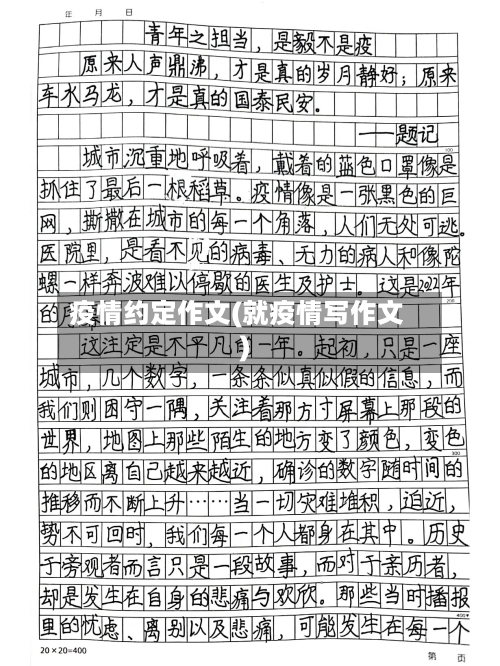 年 月 日
青年之担当，是毅不是疫
原来人声鼎沸，才是真的岁月静好；原来
车水马龙，才是真的国泰民安。
——题记
100
城市沉重地呼吸着，戴着的蓝色口罩像是
抓住了最后一根稻草。疫情像是一张黑色的巨
网，撕撒在城市的每一个角落，人们无处可逃。
医院里，是看不见的病毒、无力的病人和像陀
螺一样奔波难以停歇的医生及护士。这是2022年
200
的序
疫情约定作文(就疫情写作文
)
这注定是不平凡的一年。起初，只是一座
城市，几个数字，一条条似真似假的信息，而
我们则困守一隅，关注着那方寸屏幕上那段的
世界，地图上那些陌生的地方变了颜色，变色
300
的地区离自己越来越近，确诊的数字随时间的
推移而不断上升……当一切灾难堆积，迫近，
势不可回时，我们每一个人都身在其中。历史
于旁观者而言只是一段故事，而对于亲历者，
却是发生在自身的悲痛与欢欣。那些当时播报
400
里的忧虑、离别以及悲痛，可能发生在每一个
20×20=400
第 页